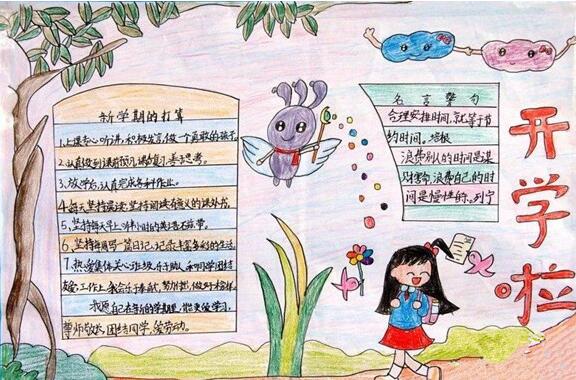 新学期的打算
1、上课专心听讲，积极发言，做个勇敢的孩子。
2、认真做到课前预习，课后复习，善于思考。
3、放学后，认真完成各科作业。
4、每天坚持读课外书。
5、坚持每天上
6、坚持每周写一篇日记，记录丰富多彩的生活。
7、热爱集体，关心班级，乐于助人，和同学团结
工作上，努力
我愿自己在新的学期里，学习，
尊师敬长，团结同学，爱劳动。
名言警句
合理安排时间，就等于节
约时间。培根
浪费别人的时间是谋
财害命，浪费自己的时
间是慢性的。列宁
开学啦